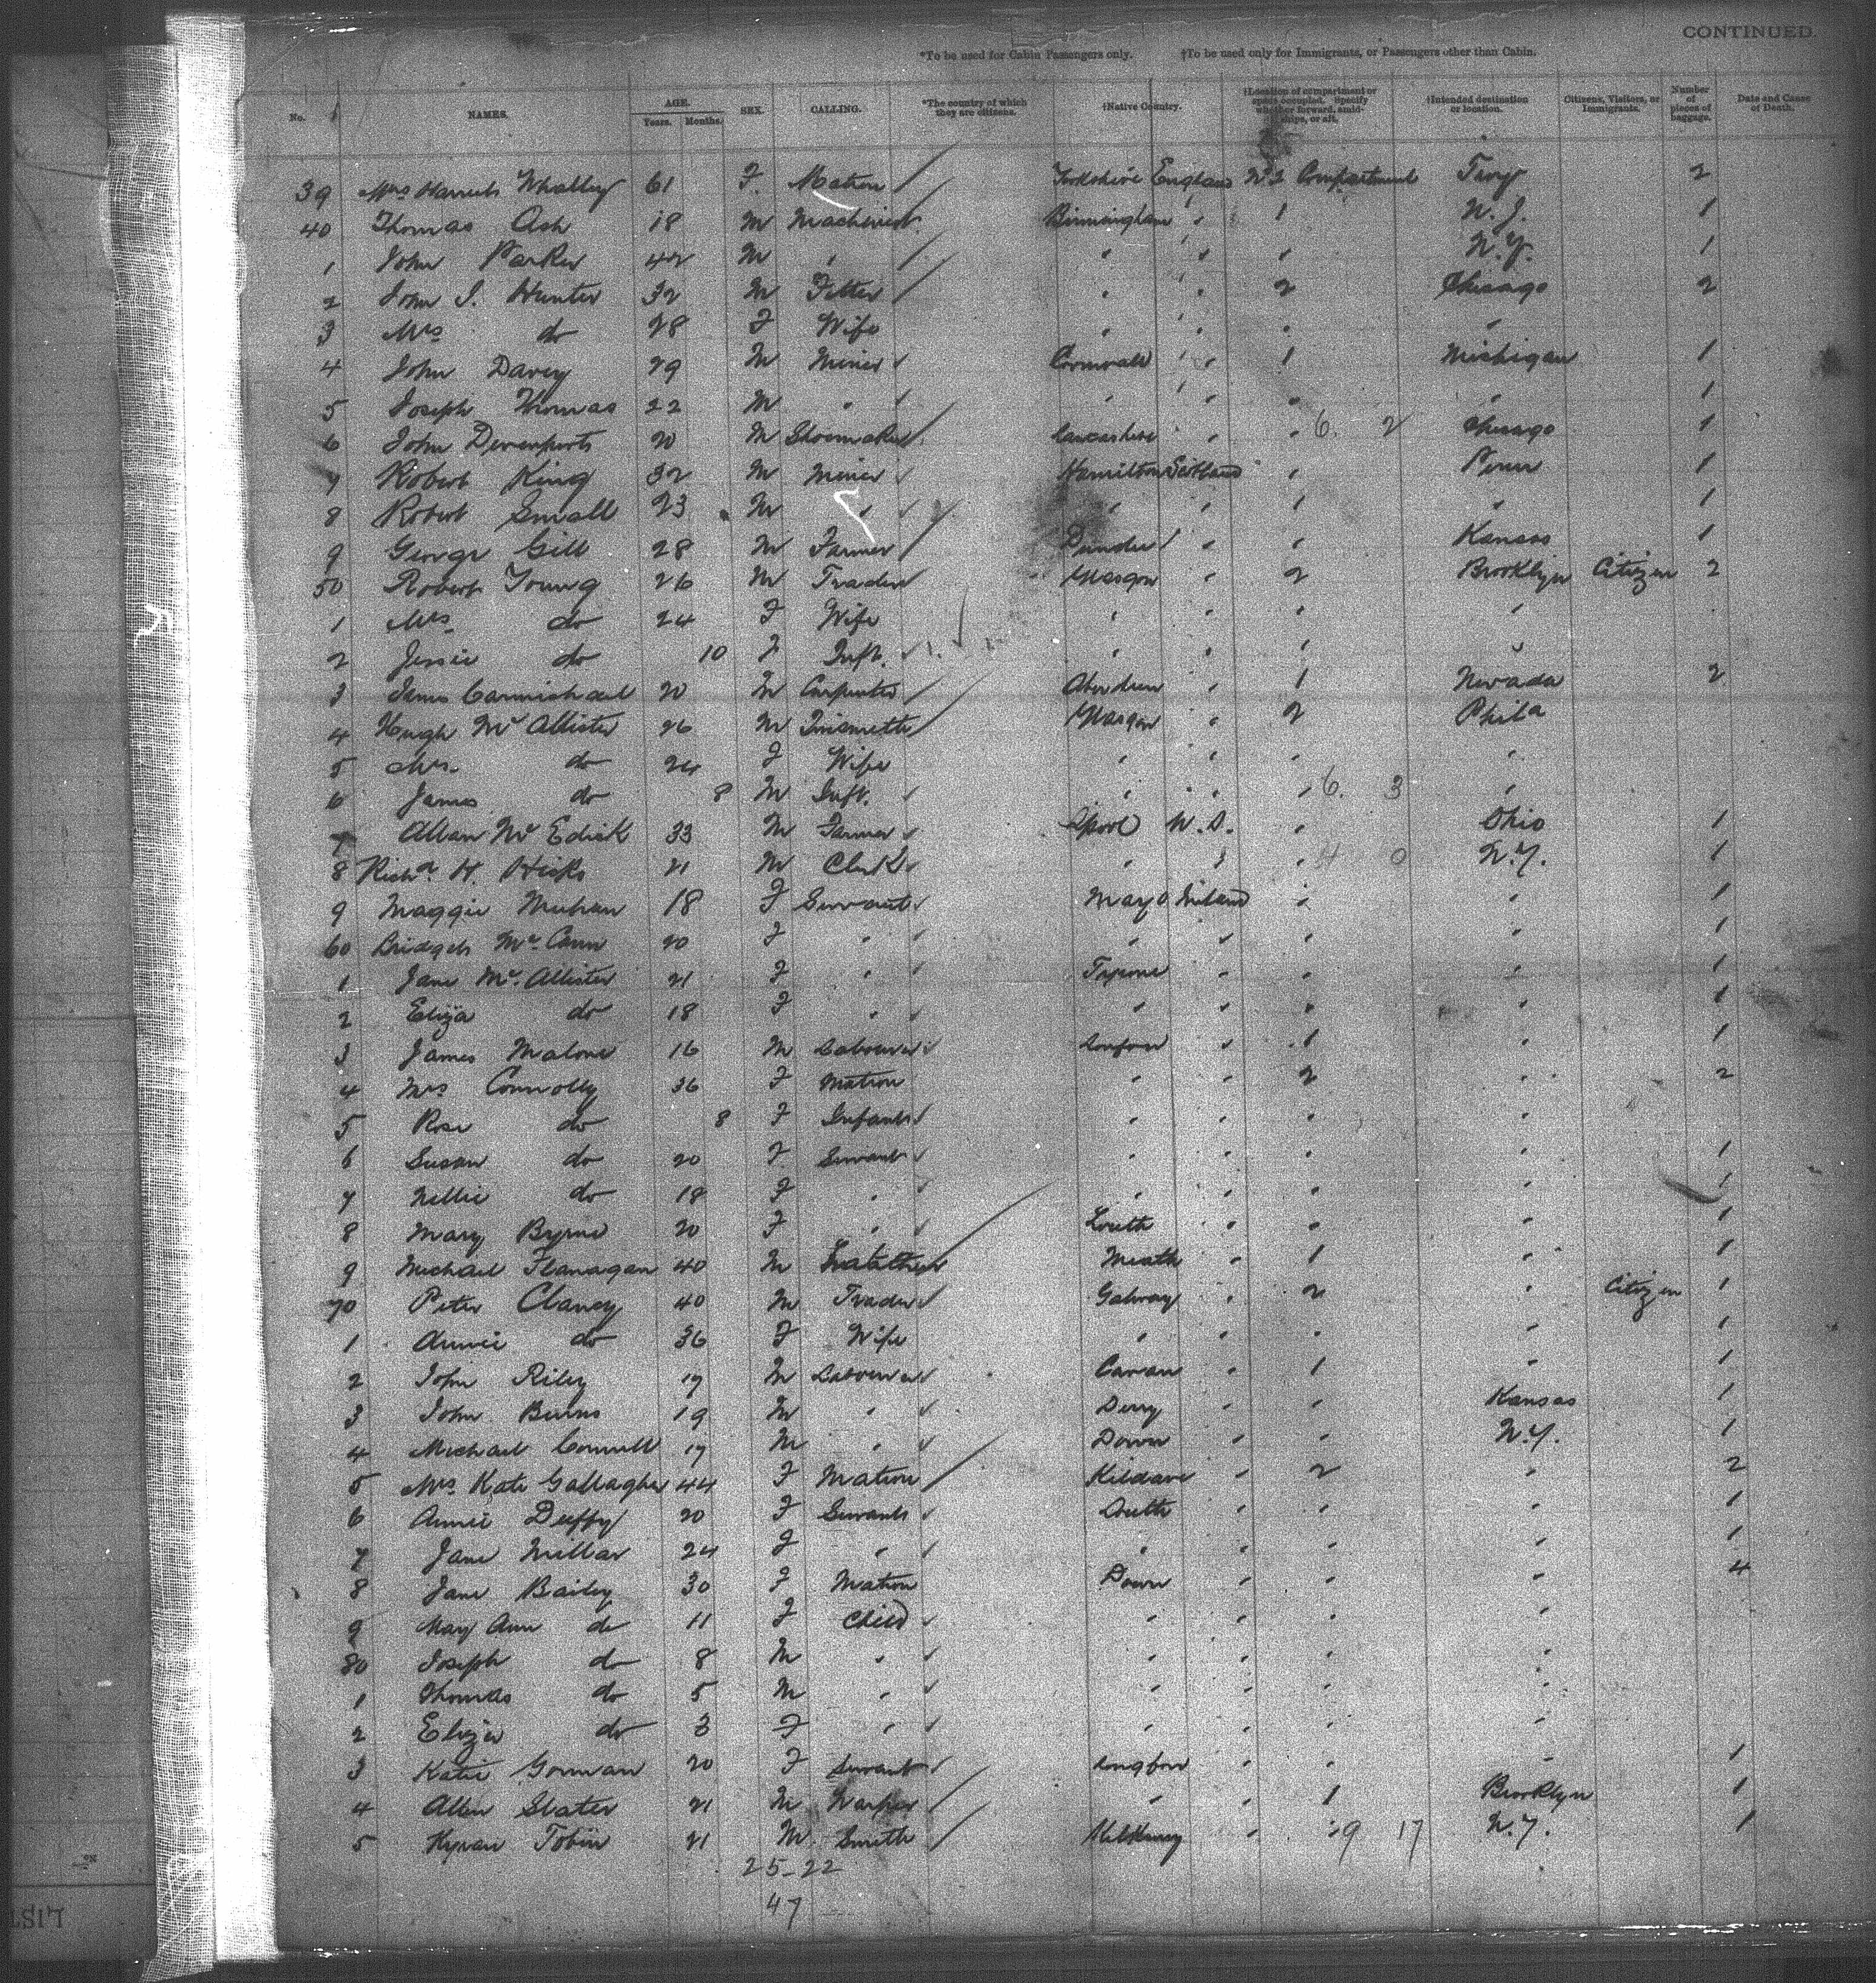 CONTINUED.
*To be used for Cabin Passengers only. †To be used only for Immigrants, or Passengers other than Cabin.
No. NAMES. AGE. Years. Months. SEX. CALLING. *The country of which they are citizens. †Native Country. †Location of compartment or space occupied. Specify whether forward, amidships, or aft. †Intended destination or location. Citizens, Visitors, or Immigrants. Number of pieces of baggage. Date and Cause of Death.
39 Mrs Harriet Whalley 61 F. Matron Yorkshire England No 2 Compartment Troy 2
40 Thomas Ash 18 M Machinist Birmingham " 1 N.J. 1
1 John Parker 42 M " " " " N.Y. 1
2 John S. Hunter 32 M Fitter " " 2 Chicago 2
3 Mrs do 28 F Wife " " " "
4 John Davey 29 M Miner Cornwall " 1 Michigan 1
5 Joseph Thomas 22 M " " " " " 1
6 John Devenports 20 M Shoemaker Lancashire " " 6. 2 Chicago 1
7 Robert King 32 M Miner Hamilton Scotland " Penn 1
8 Robert Small 23 M " " " 1 " 1
9 George Gill 28 M Farmer Dundee " " Kansas 1
50 Robert Young 26 M Trader Glasgow " 2 Brooklyn Citizen 2
1 Mrs do 24 F Wife " " " "
2 Jessie do 10 F Inft. " " " "
3 James Carmichael 20 M Carpenter Aberdeen " 1 Nevada 2
4 Hugh McAllister 26 M Tinsmith Glasgow " 2 Phila
5 Mrs. do 24 F Wife " " " "
6 James do 8 M Inft. " " " 6. 3 "
7 Alban McEdick 33 M Farmer Lpool " Ohio 1
8 Richd H. Hicks 21 M Clerk " " " 4 0 N.Y. 1
9 Maggie Meehan 18 F Servant Mayo Ireland " " 1
60 Bridget McCann 20 F " " " " " 1
1 Jane McAllister 21 F " Tyrone " " " 1
2 Eliza do 18 F " " " " " 1
3 James Malone 16 M Labourer Longford " 1 " 1
4 Mrs Connolly 36 F Matron " " 2 " 2
5 Rose do 8 F Infant " " " "
6 Susan do 20 F Servant " " " " 1
7 Nellie do 18 F " " " " " 1
8 Mary Byrne 20 F " Louth " " " 1
9 Michael Flanagan 40 M Meath " 1 " 1
70 Peter Clancy 40 M Trader Galway " 2 " Citizen 1
1 Annie do 36 F Wife " " " " 1
2 John Riley 19 M Labourer Cavan " 1 " 1
3 John Burns 19 M " Derry " " Kansas 1
4 Michael Connell 19 M " Down " " N.Y. 1
5 Mrs Kate Gallagher 44 F Matron Kildare " 2 " 2
6 Annie Duffy 20 F Servant Louth " " " 1
7 Jane Millar 24 F " " " " " 1
8 Jane Bailey 30 F Matron Down " " " 4
9 Mary Ann do 11 F Child " " " "
80 Joseph do 8 M " " " " "
1 Thomas do 5 M " " " " "
2 Eliza do 3 F " " " " "
3 Katie Gorman 20 F Servant Longford " " " 1
4 Allen Slater 21 M " " 1 Brooklyn 1
5 Kyran Tobin 21 M Smith Kilkenny " " 9 17 N.Y. 1
25-22
47
LIST